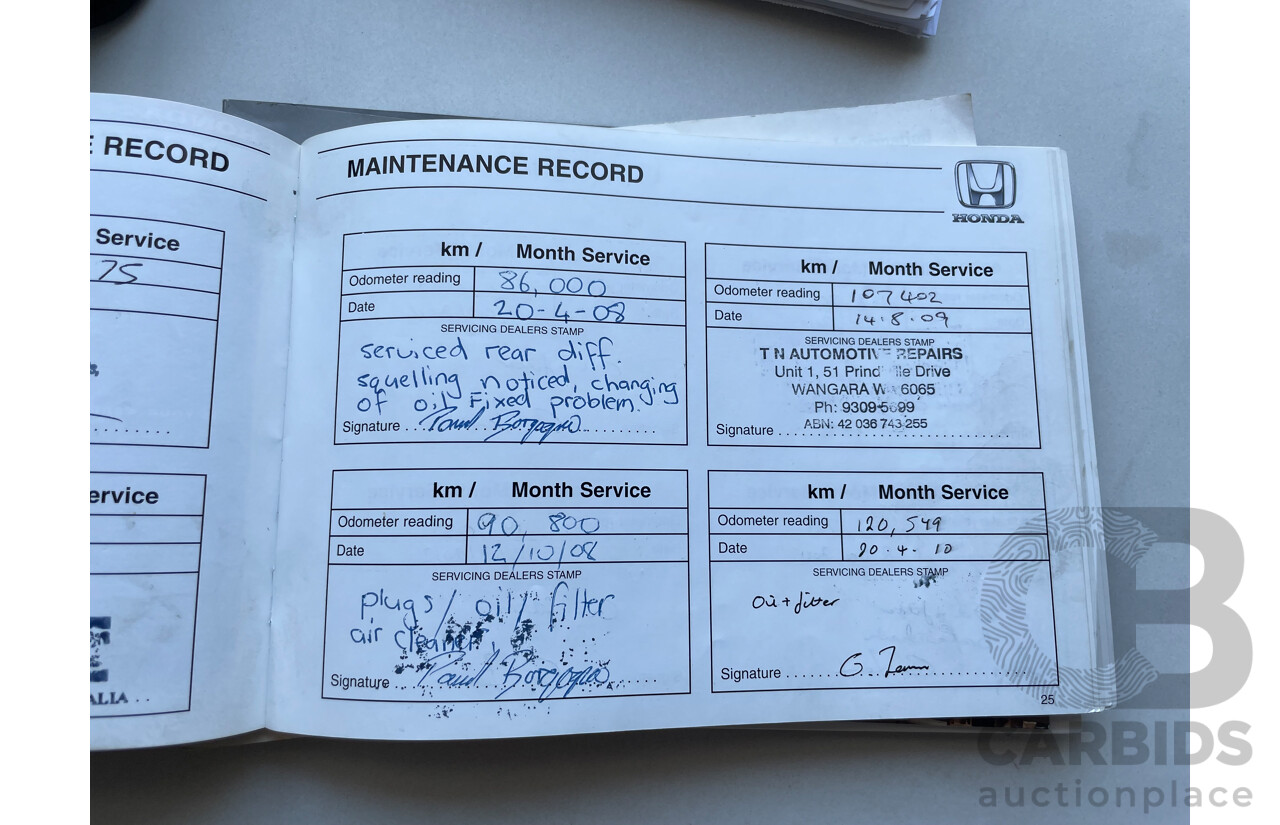 E RECORD
Service
75
ervice
ALIA
MAINTENANCE RECORD
HONDA
km / Month Service
Odometer reading 86,000
Date 20-4-08
SERVICING DEALERS STAMP
serviced rear diff.
squelling noticed, changing
of oil Fixed problem.
Signature Paul
km / Month Service
Odometer reading 107402
Date 14.8.09
SERVICING DEALERS STAMP
T N AUTOMOTIVE REPAIRS
Unit 1, 51 Drive
WANGARA 6065
Ph: 9309
ABN: 42 036 743 255
Signature
km / Month Service
Odometer reading 90,800
Date 12/10/08
SERVICING DEALERS STAMP
plugs / oil / filter
air cleaner,
Signature Paul
km / Month Service
Odometer reading 120,549
Date 20.4.10
SERVICING DEALERS STAMP
Oil + filter
Signature G.
25
CARBIDS
auctionplace